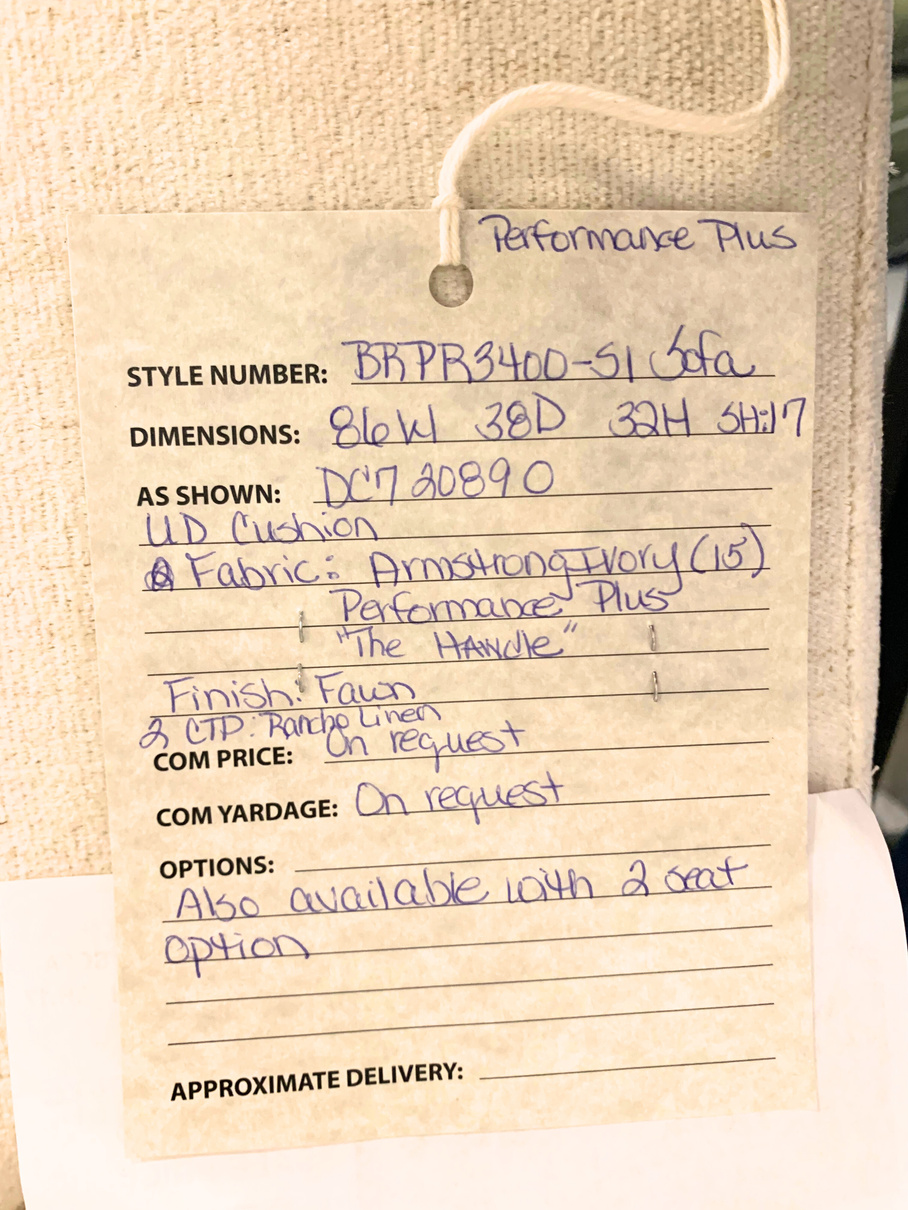 Performance Plus
STYLE NUMBER: BRPR3400-S1 Sofa
DIMENSIONS: 86W 38D 32H SH:17
AS SHOWN: DC7 20890
UD Cushion
Fabric: Armstrong Ivory (15)
Performance Plus
"The HANdle"
Finish: Fawn
2 CTP: Rancho Linen
COM PRICE: On request
COM YARDAGE: On request
OPTIONS:
Also available with 2 seat
option
APPROXIMATE DELIVERY: